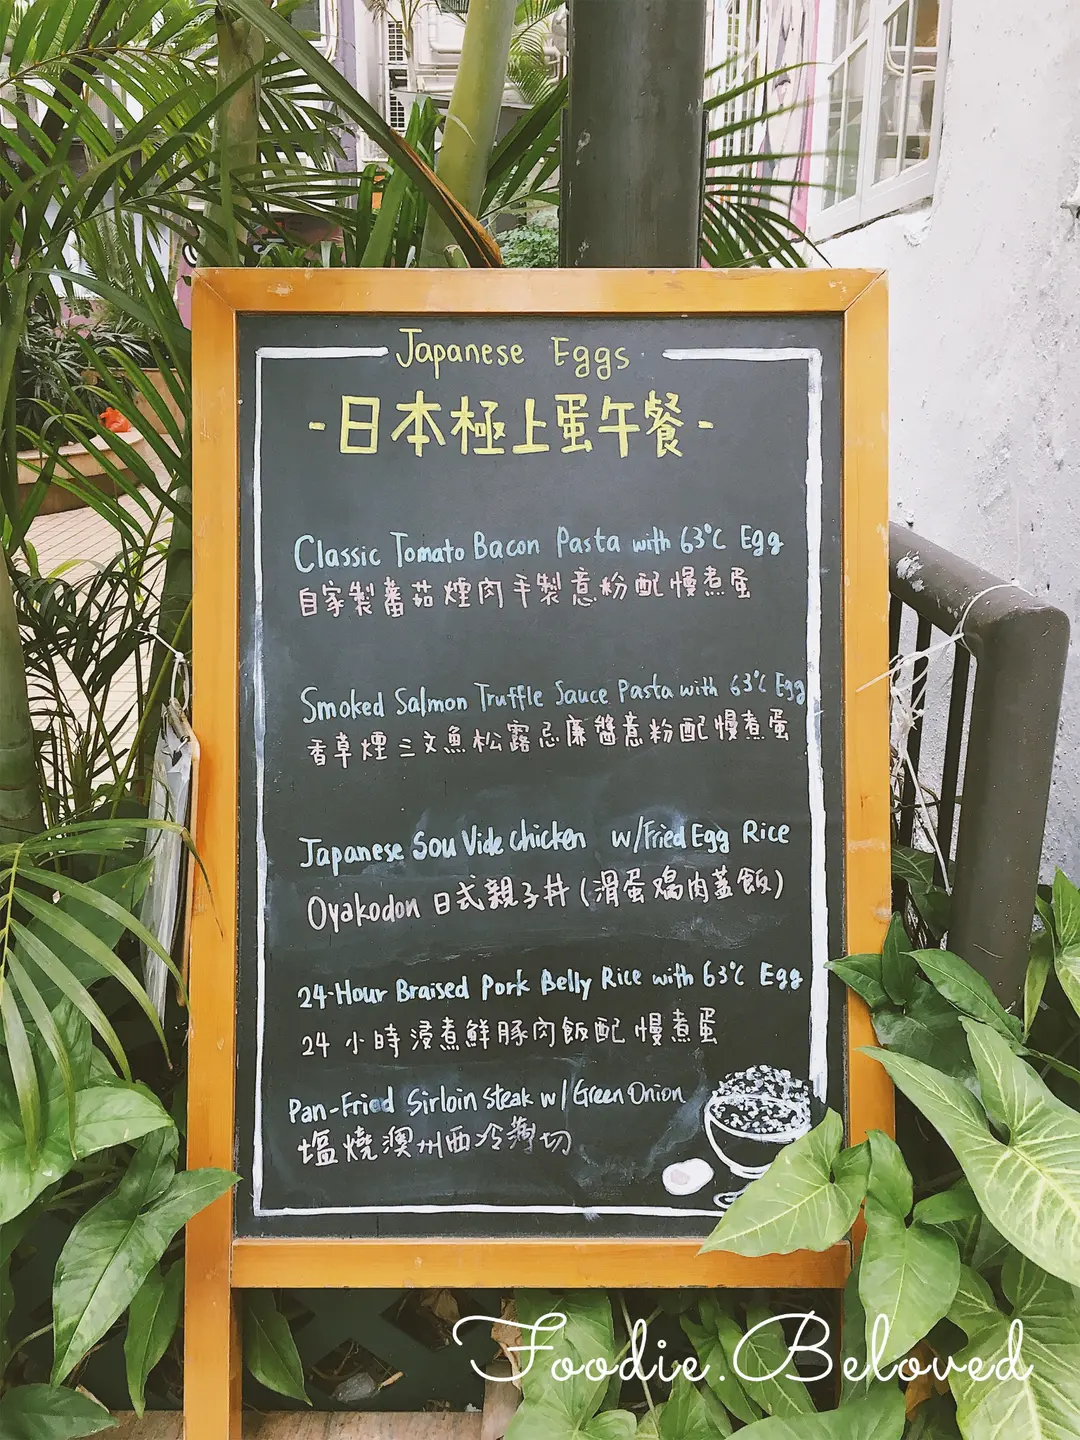 Japanese Eggs
-日本極上蛋午餐-
Classic Tomato Bacon Pasta with 63°C Egg
自家製蕃茄煙肉手製意粉配慢煮蛋
Smoked Salmon Truffle Sauce Pasta with 63°C Egg
香草煙三文魚松露忌廉醬意粉配慢煮蛋
Japanese Sou Vide Chicken w/Fried Egg Rice
Oyakodon 日式親子丼 (滑蛋鷄肉蓋飯)
24-Hour Braised Pork Belly Rice with 63°C Egg
24 小時浸煮鮮豚肉飯配慢煮蛋
Pan-Fried Sirloin Steak w/ Green Onion
塩燒澳州西冷薄切
Foodie.Beloved